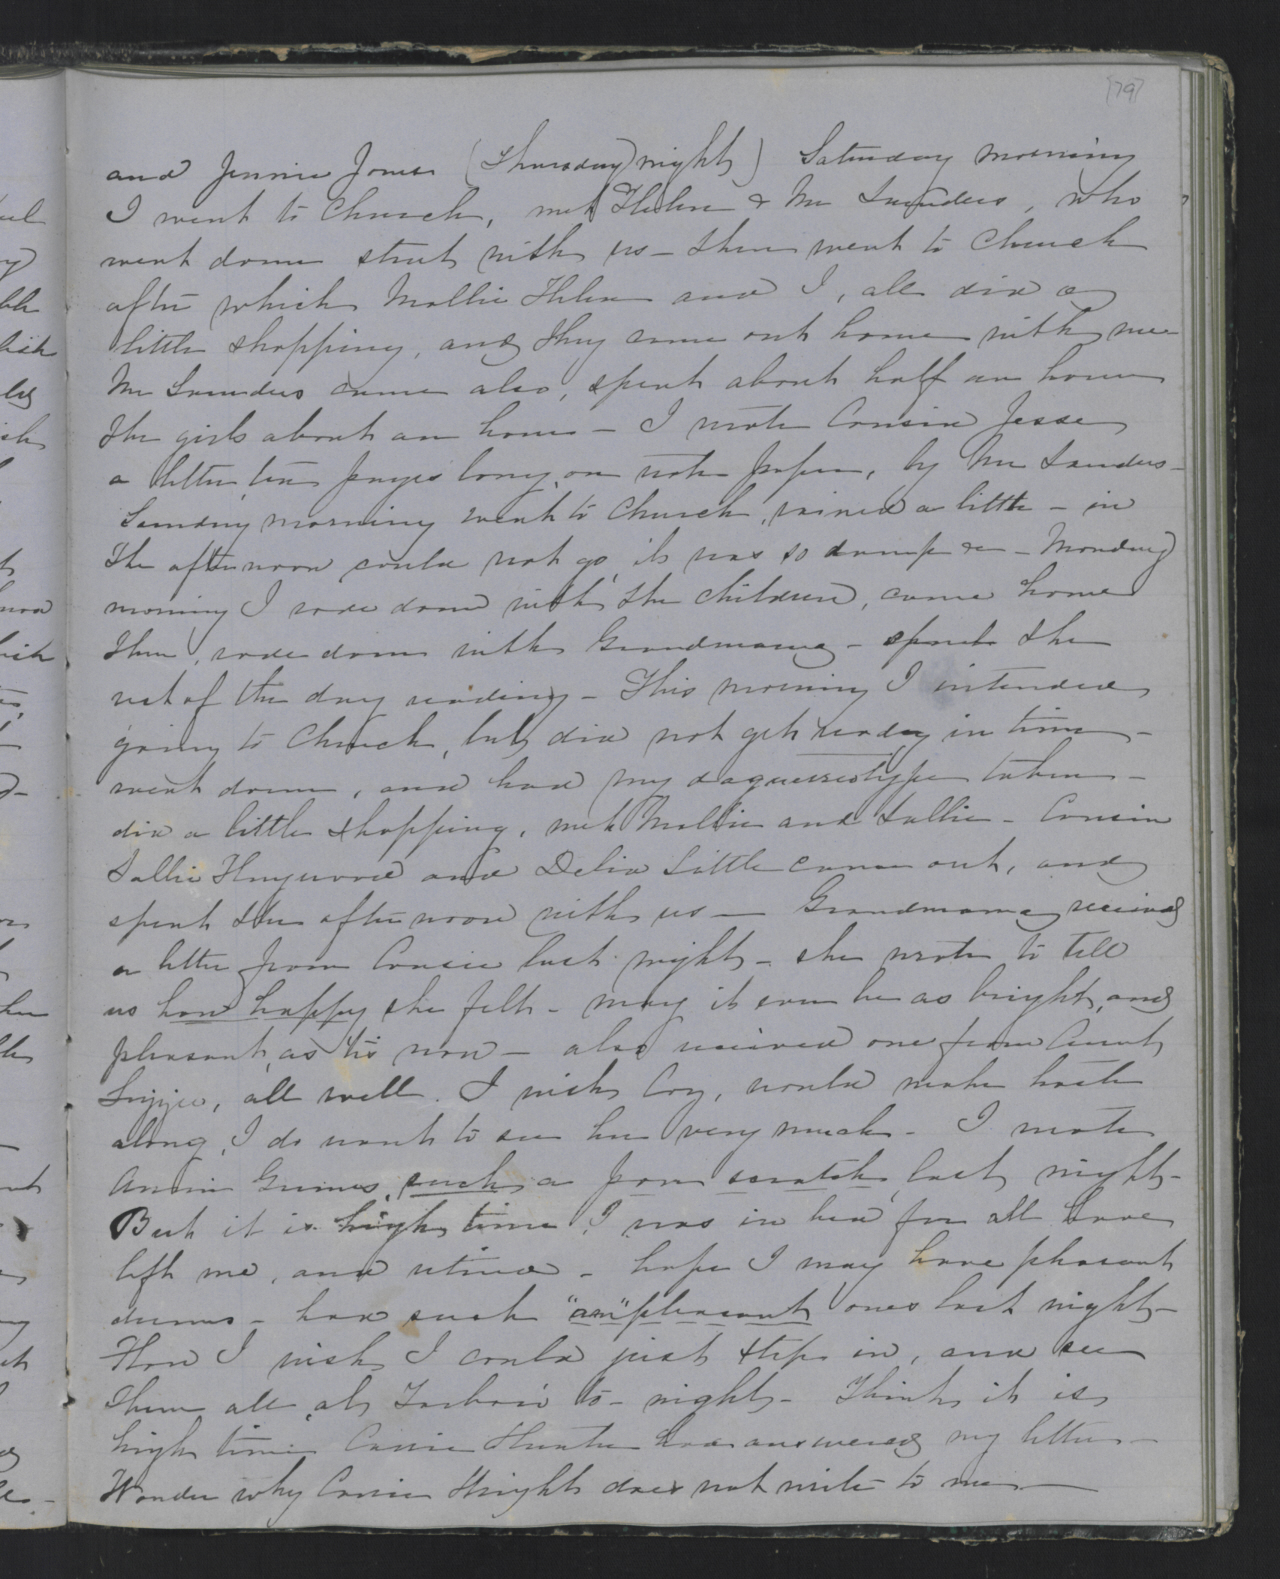 [79]
and Jennie Jones (Thursday night) Saturday morning
I went to Church, met Helen & Mr Saunders, who
went down street with us - then went to Church
after which Mollie Helen and I, all did a
little shopping, and they came out home with me
Mr Saunders came also, spent about half an hour
the girls about an hour - I wrote Cousin Jesse
a letter, ten pages long, on note paper, by Mr Saunders -
Sunday morning went to Church, rained a little - in
the afternoon could not go, it was so damp &c - Monday
morning I rode down with the children, came home
then, rode down with Grandmama - spent the
rest of the day reading - This morning I intended
going to Church, but did not get ready in time -
went down, and had my daguerreotype taken -
did a little shopping, met Mollie and Sallie - Cousin
Sallie Haywood and Delia Little came out, and
spent the afternoon with us - Grandmama received
a letter from Cousin last night - she wrote to tell
us how happy she felt - may it ever be as bright, and
pleasant, as 'tis now - also received one from Aunt
Lizzie, all well. I wish Coz, would make haste
along, I do want to see her very much - I wrote
Annie Grimes, such a poor scratch, last night -
But it is high time, I was in bed for all have
left me, and retired - hope I may have pleasant
dreams - had such "un"pleasant ones last night -
How I wish I could just step in, and see
them all at Tarboro' to-night - Think it is
high time Cousin had answered my letter -
Wonder why Cousin does not write to me -